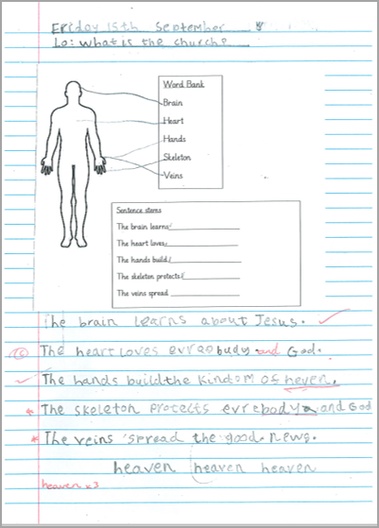 Friday 15th September
Lo: What is the church?
Word Bank
Brain
Heart
Hands
Skeleton
Veins
Sentence stems
The brain learns
The heart loves
The hands build
The skeleton protects
The veins spread
The brain learns about Jesus.
The heart loves evreobudy and God.
The hands build the Kindom of heven.
The skeleton protects evrebody and God
The veins spread the good news.
heaven heaven heaven
heaven x3